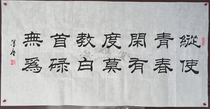 縱使
青春
閑有
度莫
教白
首碌
無爲